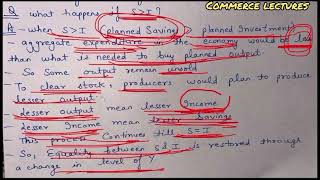 COMMERCE LECTURES
Q what happens if S>I?
A - when S>I (planned Saving > planned Investment)
- aggregate expenditure in the economy would be less
than what is needed to buy planned output.
- So Some output remain unsold
- To clear stock, producers would plan to produce
lesser output.
- Lesser output mean lesser Income
- Lesser Income mean lesser Savings
- This process Continues till S=I
- So, Equality between S & I is restored through
a change in level of Y